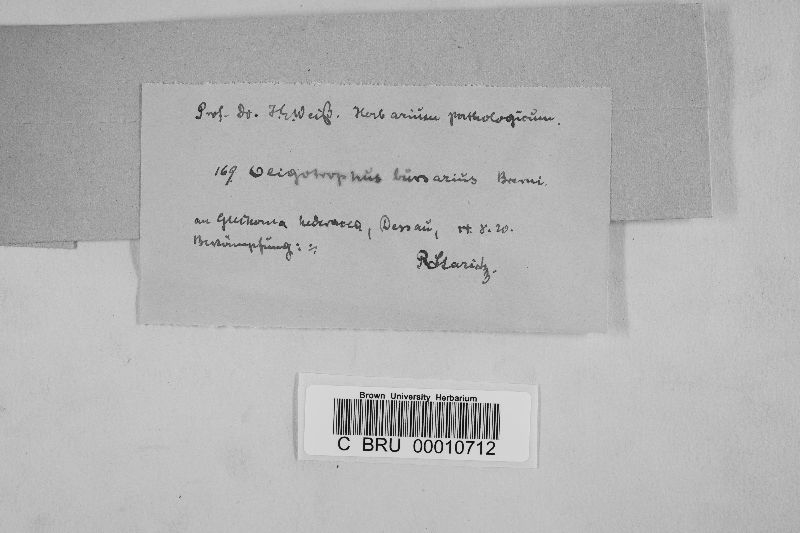 Prof. Dr. H. Weiß. Herbarium pathologicum.
169 Oligotrophus bursarius Bremi.
an Glechoma hederacea, Dessau, 8. 20.
Bekämpfung: :
R Staritz.
Brown University Herbarium
C BRU 00010712